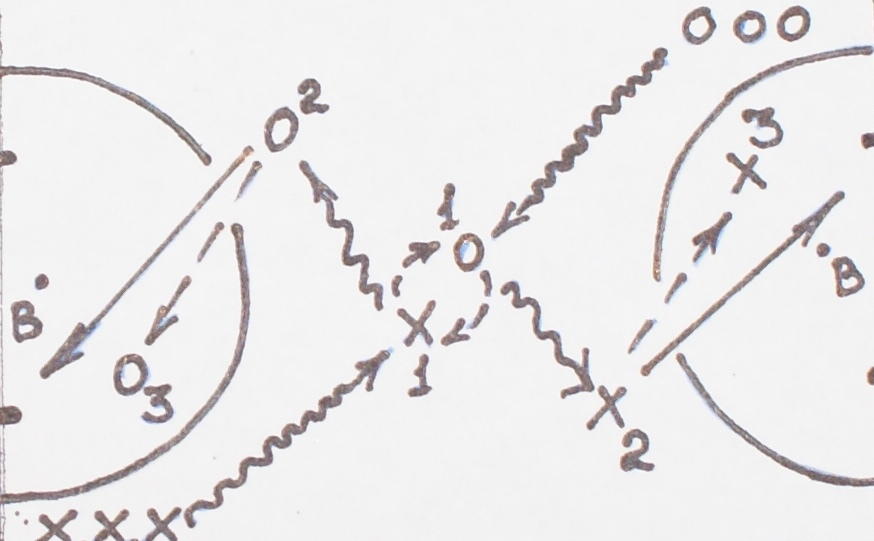 O O O
O 2
X 3
1
O
B
B
X
1
O 3
X
2
X X X